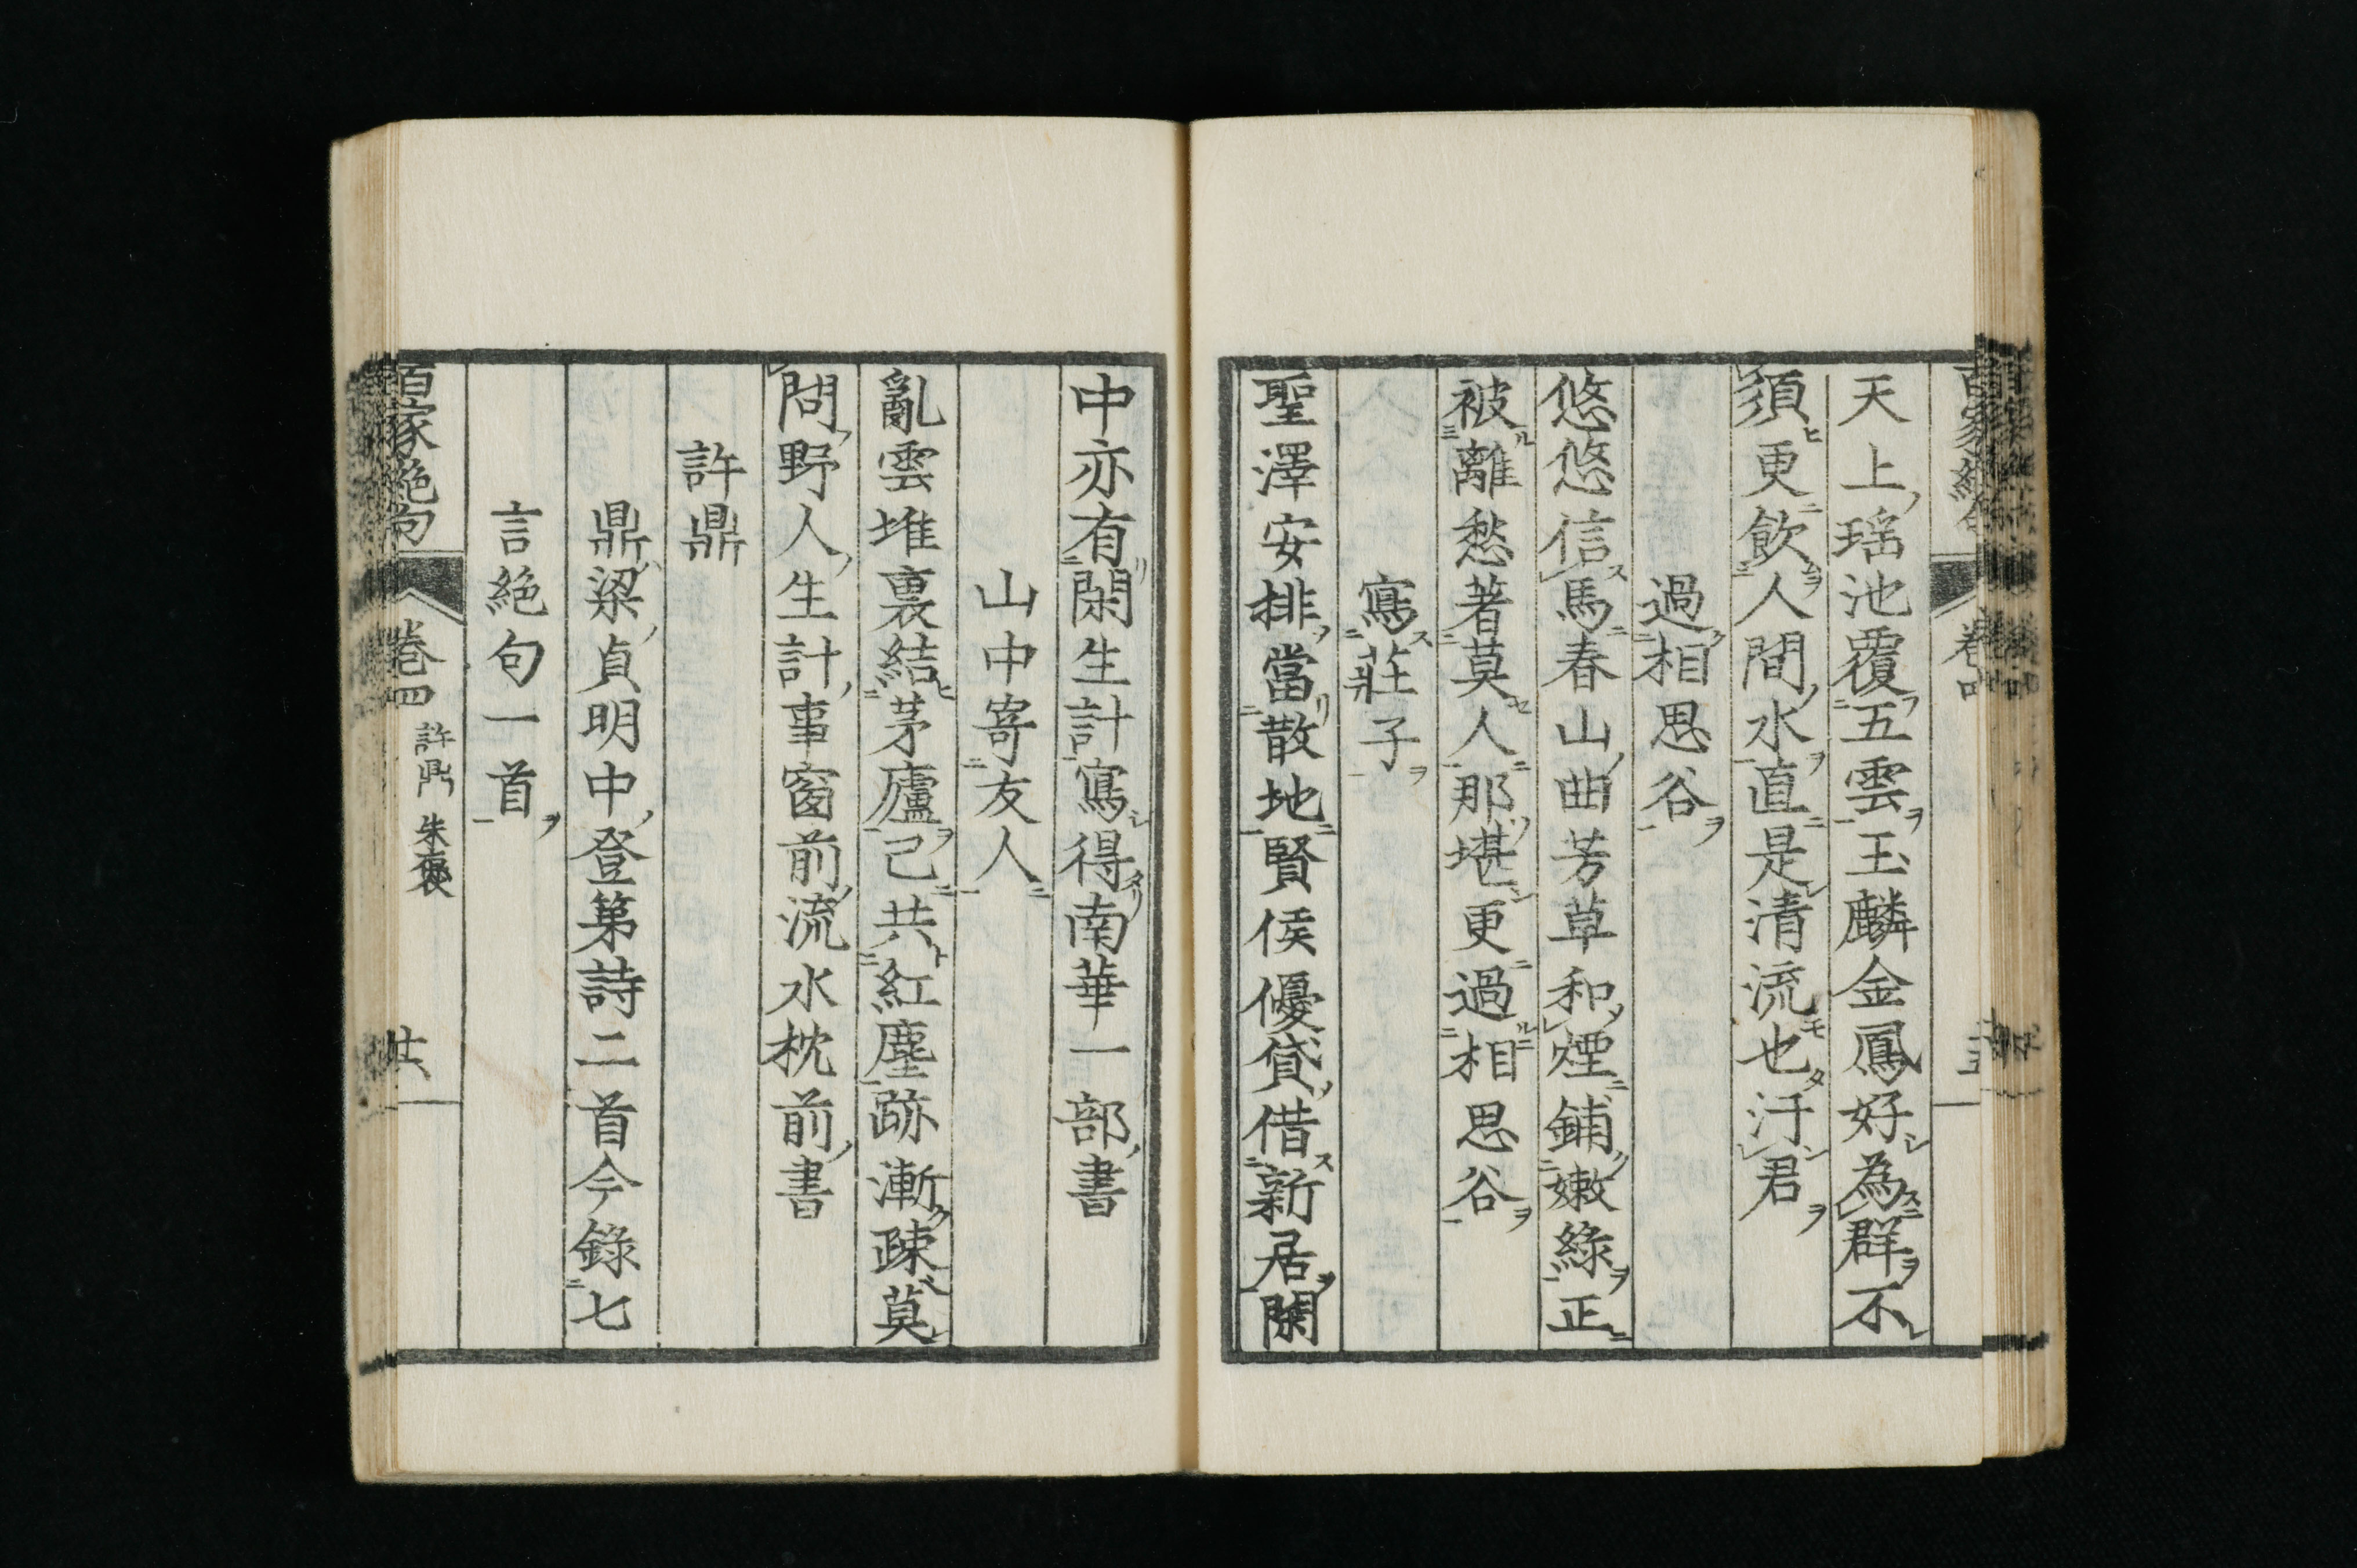 天上瑶池覆五雲玉麟金鳳好為群不
須更飲人間水直是清流也汙君
過相思谷
悠悠信馬春山曲芳草和煙鋪嫩綠正
被離愁著莫人那堪更過相思谷
寫莊子
聖澤安排當散地賢侯優貸借新居閑
中亦有閑生計寫得南華一部書
山中寄友人
亂雲堆裏結茅廬已共紅塵跡漸疎莫
問野人生計事窗前流水枕前書
許鼎
鼎梁貞明中登第詩二首今錄七
言絕句一首
百家絕句 卷四 許鼎 朱褒 廿六